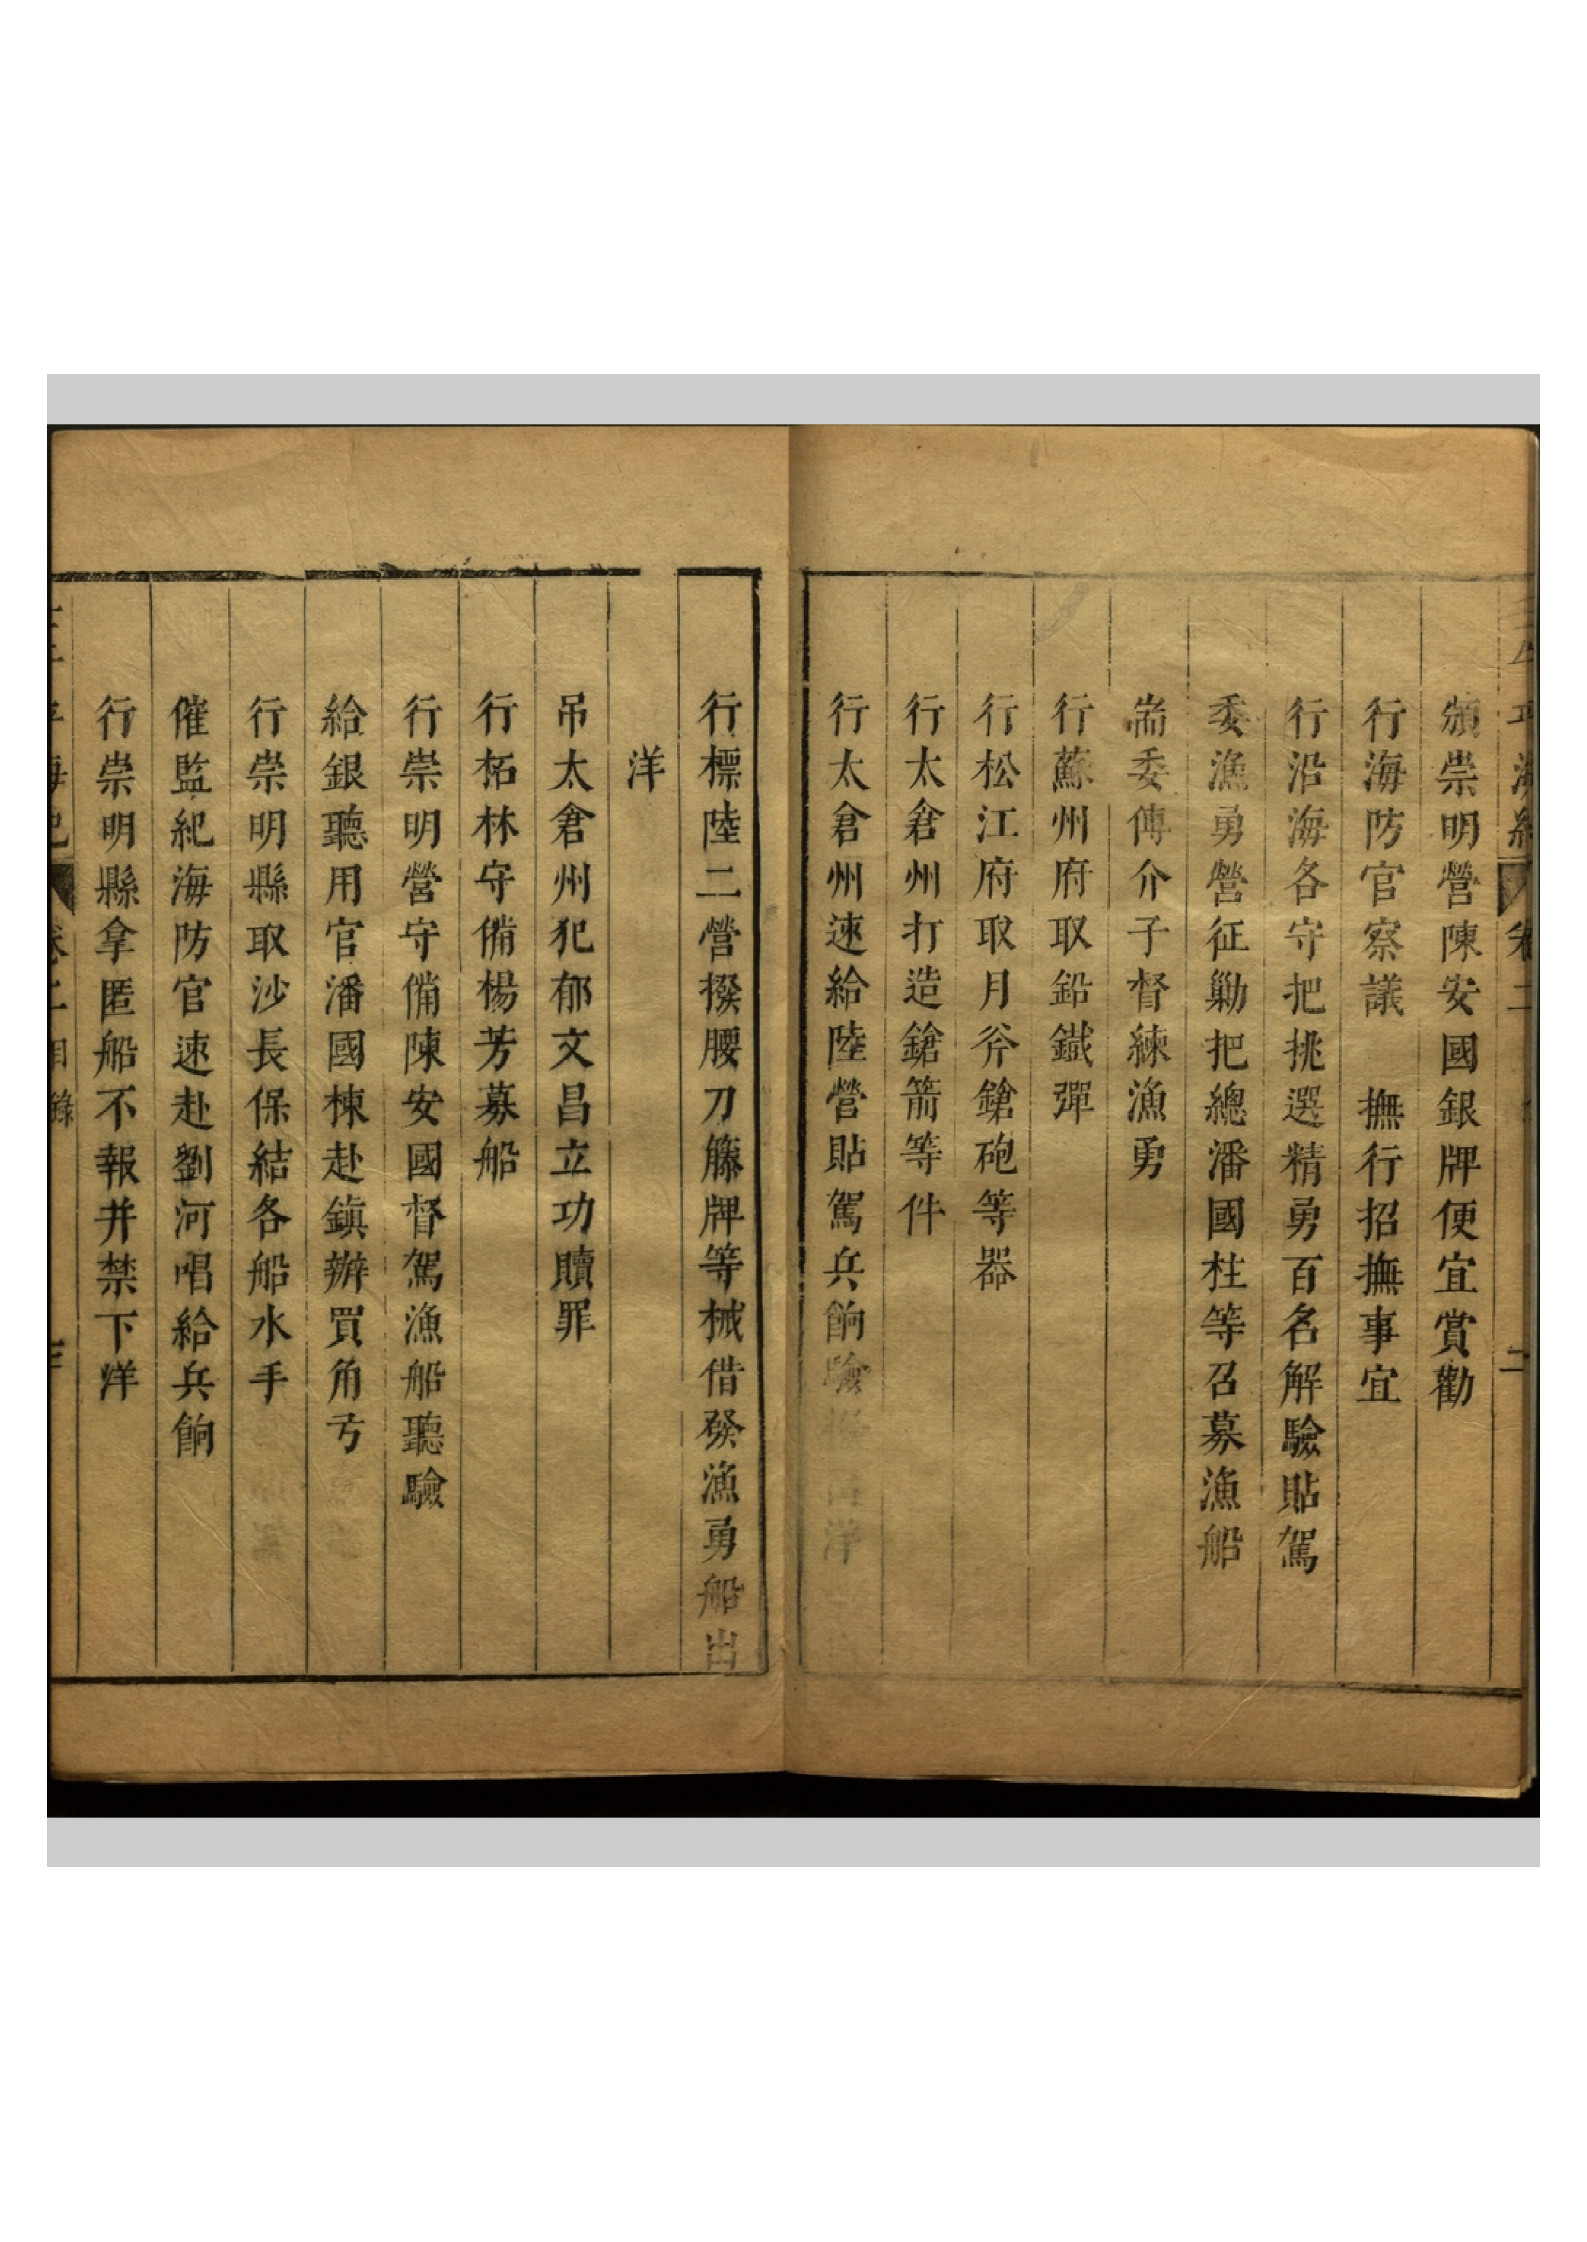 頒崇明營陳安國銀牌便宜賞勸
行海防官察議　撫行招撫事宜
行沿海各守把挑選精勇百名解驗貼駕
委漁勇營征勦把總潘國柱等召募漁船
耑委傅介子督練漁勇
行蘇州府取鉛鐵彈
行松江府取月斧鎗砲等器
行太倉州打造鎗箭等件
行太倉州速給陸營貼駕兵餉驗
行標陸二營撥腰刀籐牌等械借發漁勇船出
洋
吊太倉州犯郁文昌立功贖罪
行柘林守備楊芳募船
行崇明營守備陳安國督駕漁船聽驗
給銀聽用官潘國棟赴鎮辦買角弓
行崇明縣取沙長保結各船水手
催監紀海防官速赴劉河唱給兵餉
行崇明縣拿匿船不報并禁下洋